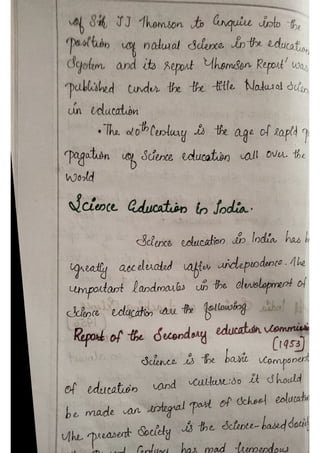 of Sir JJ Thomson to enquire into the
position of natural Science in the education
System and its report 'Thomson Report' was
published under the the title Natural Scien
in education
• The 20th Century is the age of rapid p
pagation of Science education all over the
World
Science Education in India.
Science education in India has b
greatly accelerated after independence. The
important landmarks in the development of
Science education are the following
Report of the Secondary education commissi
[1953]
Science is the basic component
of education and culture. so it should
be made an integral part of School educati
The preasent Society is the Science-based Societ
Century has mad tremendous